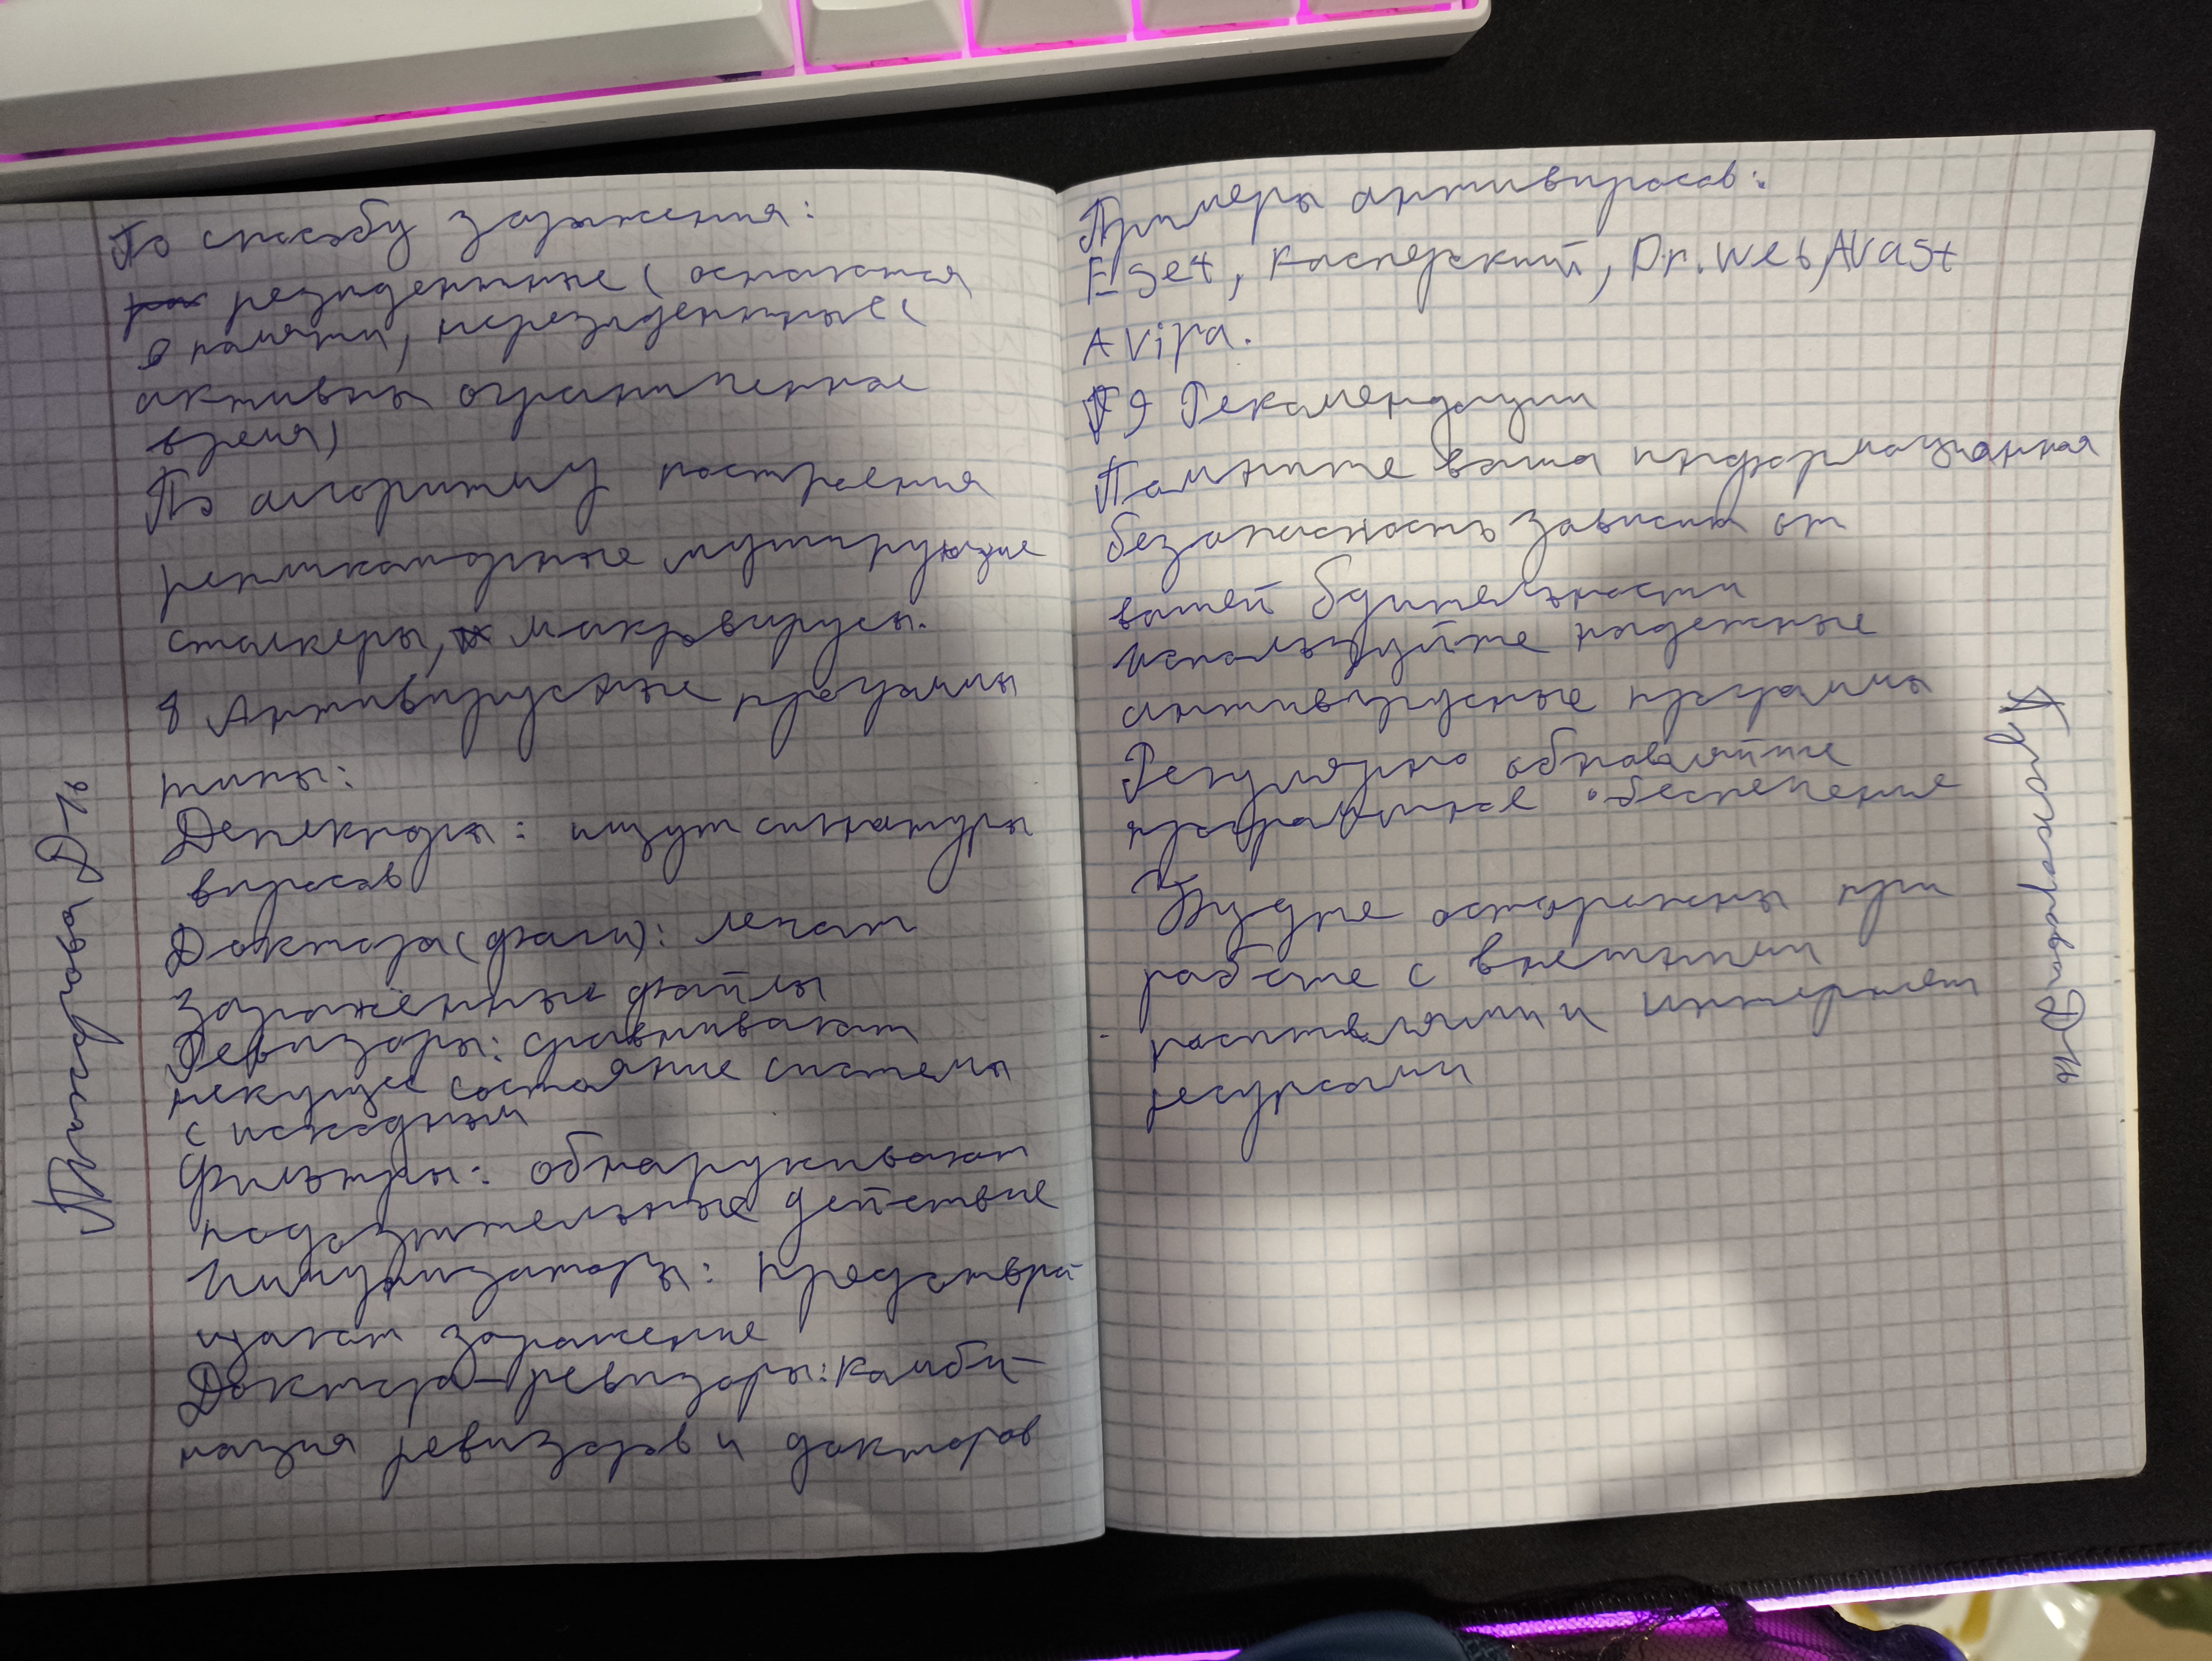 По способу заражения:
резидентные (остаются
в памяти, нерезидентные (
активны ограниченное
время)
По алгоритму построения
репликаторные мутирующие
сталкеры, макровирусы.
8 Антивирусные программы
типы:
Детекторы: ищут сигнатуры
вирусов
Доктора (фаги): лечат
заражённые файлы
Ревизоры: сравнивают
текущее состояние системы
с исходным
Фильтры: обнаруживают
подозрительные действие
Иммунизаторы: предотвра-
щают заражение
Доктора-ревизоры: комби-
нация ревизоров и докторов
Примеры антивирусов:
ESet, касперский, Dr.Web, AVast
AVira.
9 Рекамендации
Помните ваша информационная
безопасность зависит от
вашей бдительности
Используйте надежные
антивирусные программы
Регулярно обновляйте
программное обеспечение
Будте осторожны при
работе с внешними
носителями и интернет
ресурсами